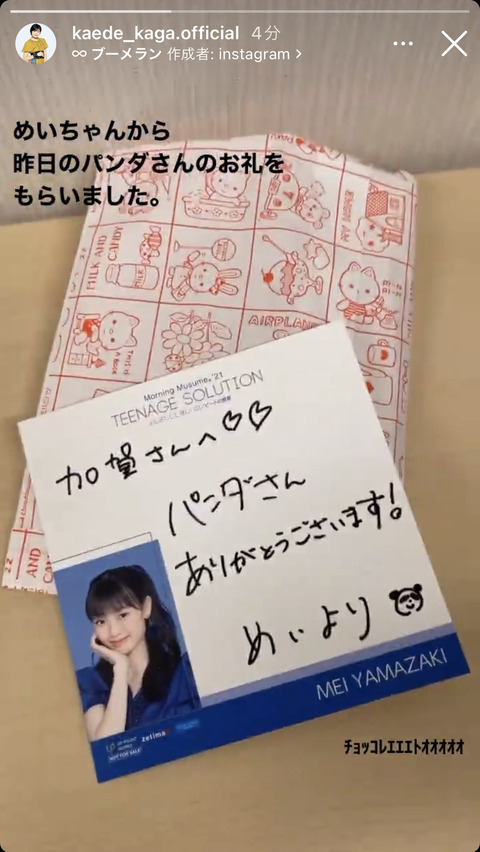 kaede_kaga.official 4分
∞ ブーメラン 作成者: instagram >
めいちゃんから
昨日のパンダさんのお礼を
もらいました。
MILK AND
CANDY
MILK
AIRPLANE
THIS IS
A BOOK
Morning Musume。'21
TEENAGE SOLUTION
加賀さんへ♡♡
パンダさん
ありがとうございます!
めいより
MEI YAMAZAKI
22
AND
zetima
NOT FOR SALE
ﾁｮｯｺﾚｴｴｴﾄｵｵｵｵｵ